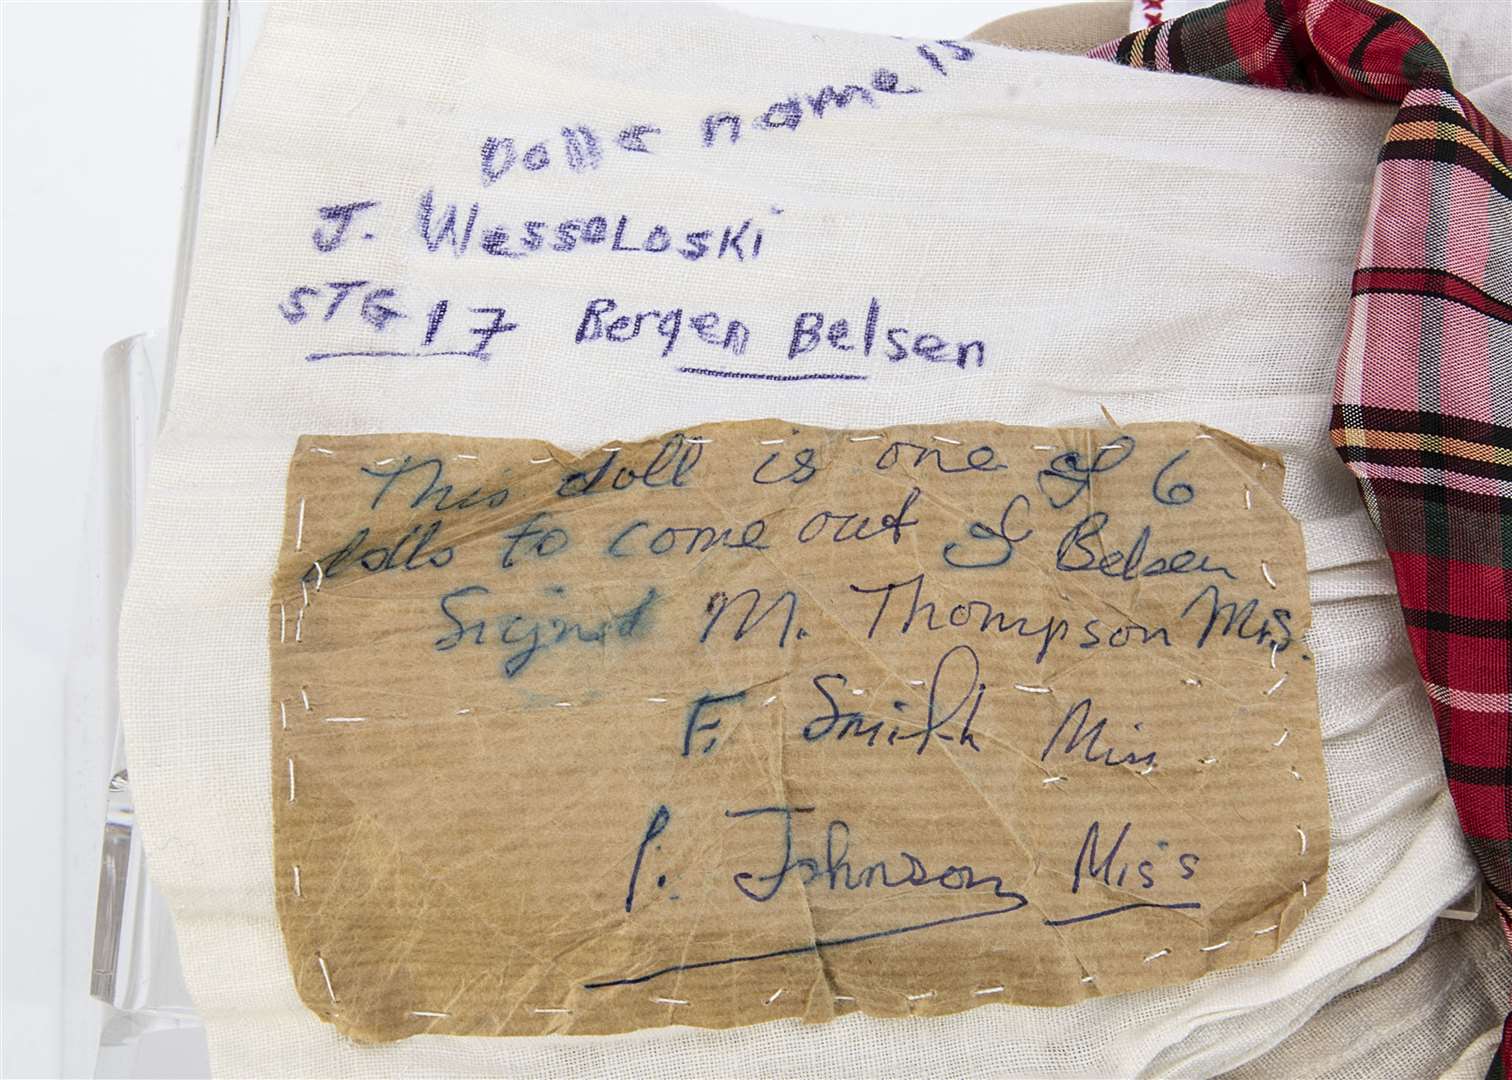 Dolls name is
J. WessoLoski
STG 17 Bergen Belsen
This doll is one of 6
dolls to come out of Belsen
Signed M. Thompson Mrs.
F. Smith Miss
P. Johnson Miss